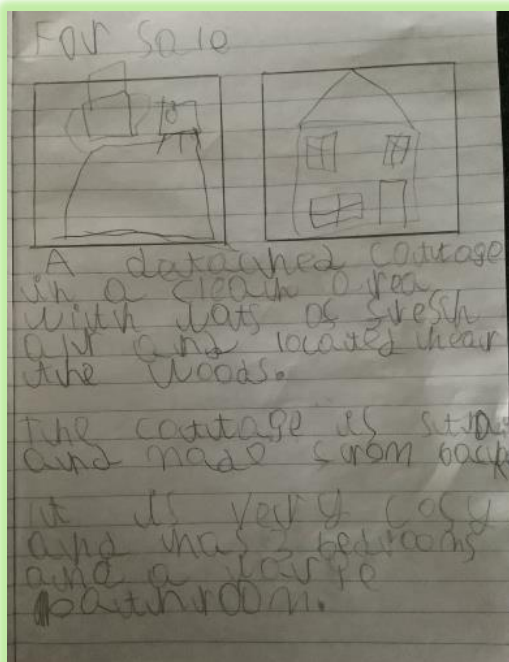 For Sale
A datached cottage
in a clean area
with lots of fresh
air and located near
the woods.
the cottage is
and made from
it is very cosy
and has 3 bedrooms
and a large
bathroom.